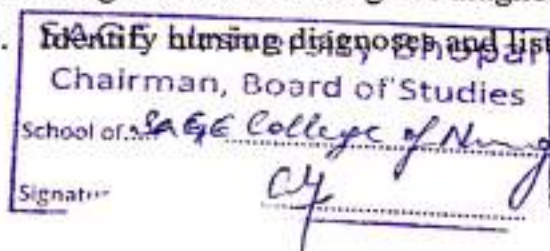 Identify nursing diagnoses and list
SAGE University, Bhopal
Chairman, Board of Studies
School of SAGE College of Nursing
Signature